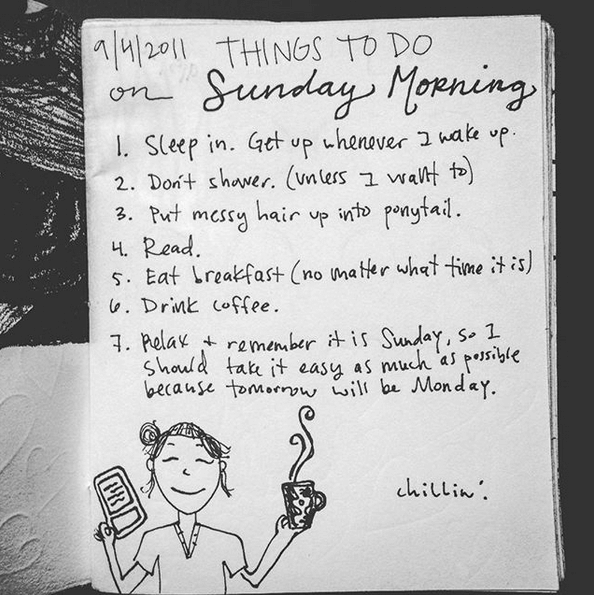 9/4/2011 THINGS TO DO
on Sunday Morning
1. Sleep in. Get up whenever I wake up.
2. Don't shower. (unless I want to)
3. Put messy hair up into ponytail.
4. Read.
5. Eat breakfast (no matter what time it is)
6. Drink coffee.
7. Relax + remember it is Sunday, so I
should take it easy as much as possible
because tomorrow will be Monday.
chillin'.